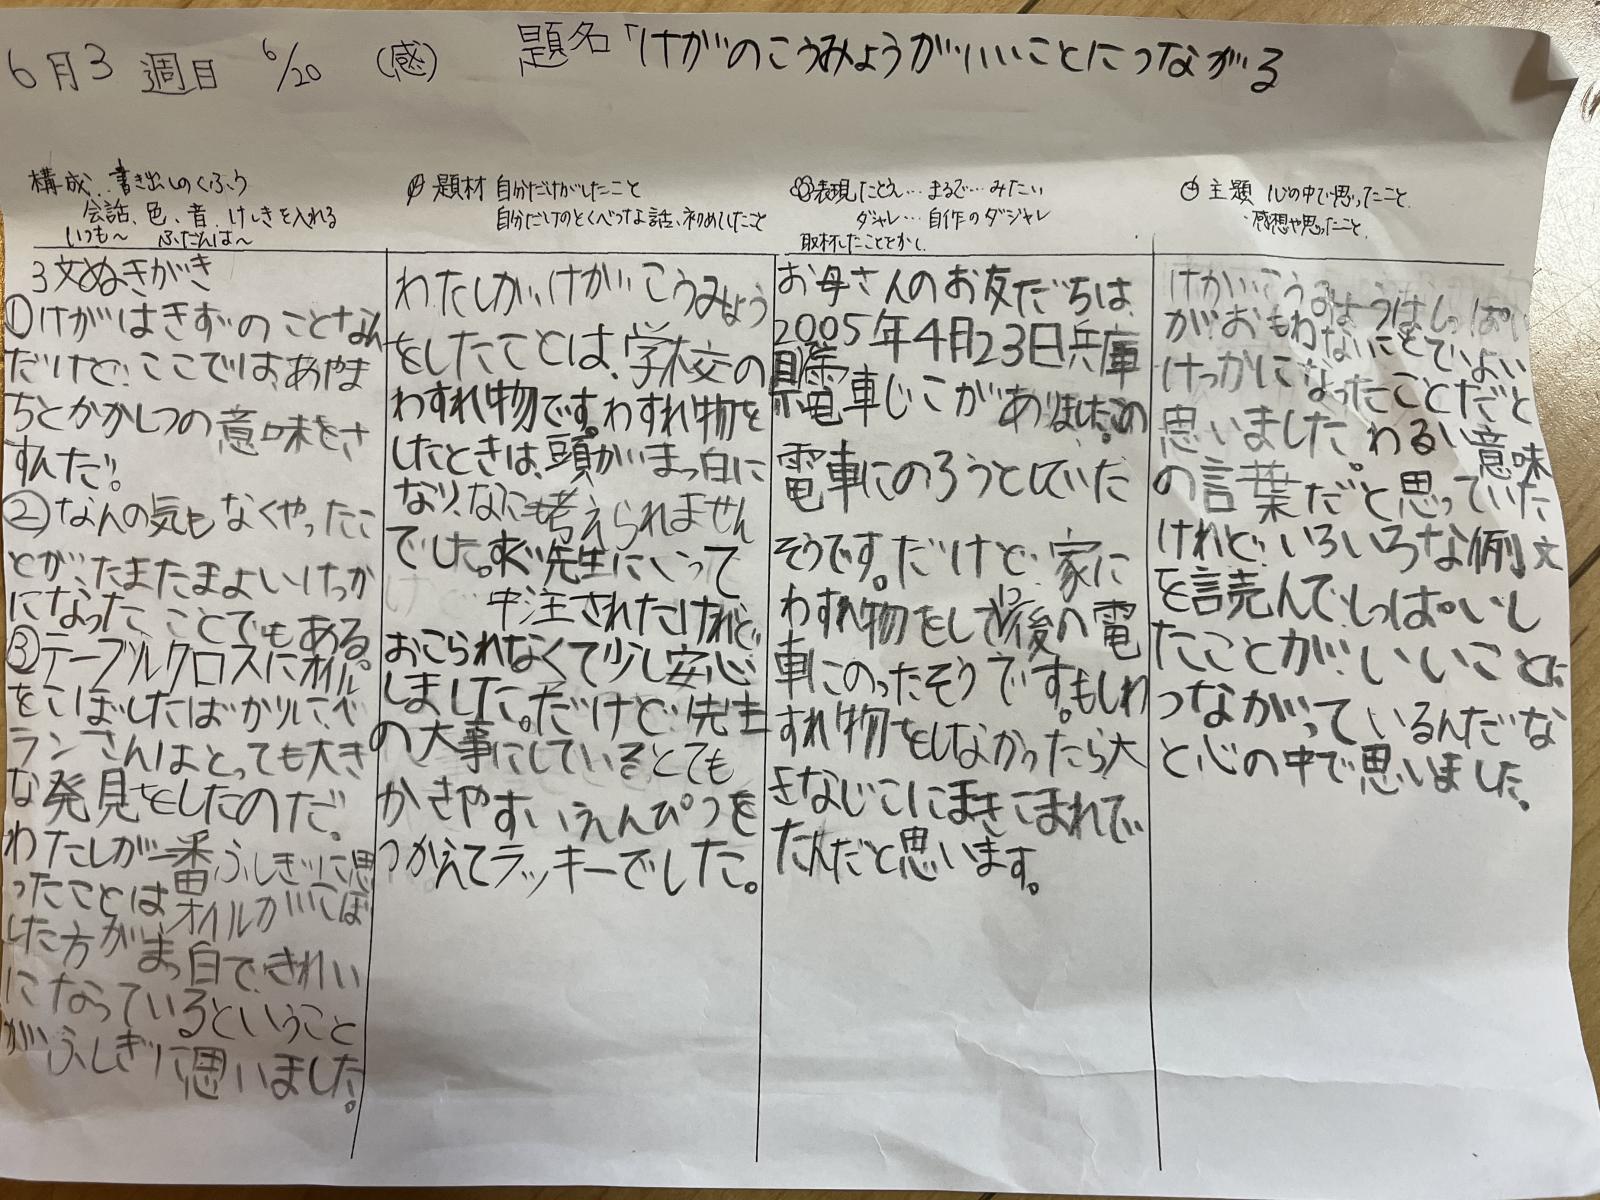 6月3週目 6/20 (感) 題名「けがのこうみょうがいいことにつながる
構成.. 書き出しのくふう
会話、色、音、けしきを入れる
いつも〜 ふだんは〜
3文ぬきがき
①けがはきずのことなん
だけど、ここでは、あやま
ちとかかしつの意味をさ
すんだ。
②なんの気もなくやったこ
とが、たまたまよいけっか
になったことでもある。
③テーブルクロスにオイル
をこぼしたばかりに、ベ
ランさんはとっても大き
な発見をしたのだ。
わたしが一番ふしぎに思
ったことはオイルがこぼ
した方がまっ白で、きれい
になっているということ
がふしぎに思いました。
題材 自分だけがしたこと
自分だけのとくべつな話、初めてしたこと
わたしが、けがのこうみょう
をしたことは、学校の
わすれ物です。わすれ物を
したときは、頭がまっ白に
なり、なにも考えられません
でした。すぐ先生にいって
中注されたけれど、
おこられなくて少し安心
しました。だけど、先生
の大事にしているとても
かきやすいえんぴつを
つかえてラッキーでした。
表現 たとえ… まるで… みたい
ダジャレ… 自作のダジャレ
取材したこととかく
お母さんのお友だちは、
2005年4月23日兵庫
県電車じこがありました。の
電車にのろうとしていた
そうです。だけど、家に
わすれ物をして1つ後の電
車にのったそうです。もしわ
すれ物をしなかったら大
きなじこにまきこまれて
たんだと思います。
主題 心の中で思ったこと
感想や思ったこと
けがのこうみょうはしっぱい
が、おもわないことでよい
けっかになったことだと
思いました。わるい意味
の言葉だと思っていた
けれど、いろいろな例文
を読んで、しっぱいし
たことが、いいことに
つながっているんだな
と心の中で思いました。